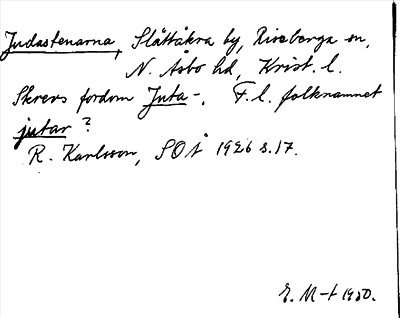 Judastenarna, Slättåkra by, Riseberga sn,
N. Åsbo hd, Krist. l.
Skrevs fordom Juta-. T. l. folknamnet
jutar?
R. Karlsson, SOÅ 1926 s. 17.
E. M-t 1950.